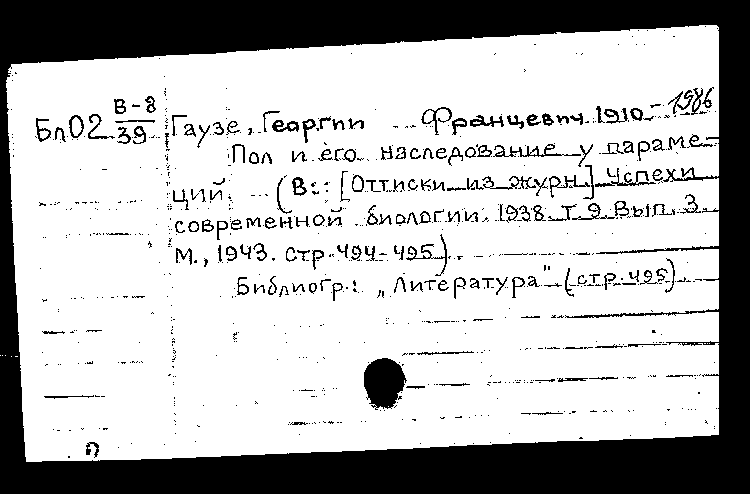 Бл02 В-8/39 Гаузе, Георгий Францевич 1910-1986
Пол и его наследование у параме-
ций. (В: [Оттиски из журн.] Успехи
современной биологии. 1938. Т 9. Вып. 3.
М., 1943. стр. 494-495).
Библиогр.: „Литература" (стр. 495).